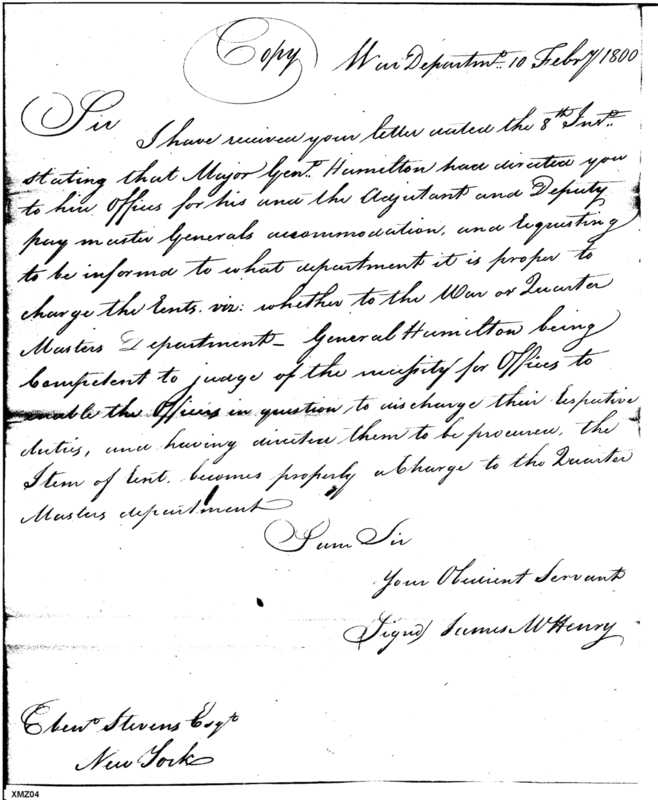 Copy War Departmt. 10 Febry 1800
Sir
I have received your letter dated the 8th Inst.
stating that Major Genl. Hamilton had directed you
to hire Offices for his and the Adjutant and Deputy
pay master Generals accommodation, and requesting
to be informd to what department it is proper to
charge the rents. viz: whether to the War or Quarter
Masters Department – General Hamilton being
competent to judge of the necessity for Offices to
enable the Officers in question to discharge their respective
duties, and having directed them to be procured, the
Item of rent. becomes properly a Charge to the Quarter
Masters department
I am Sir
Your Obedient Servant
(Signd) James McHenry
Ebenr. Stevens Esqr.
New York
XMZ04